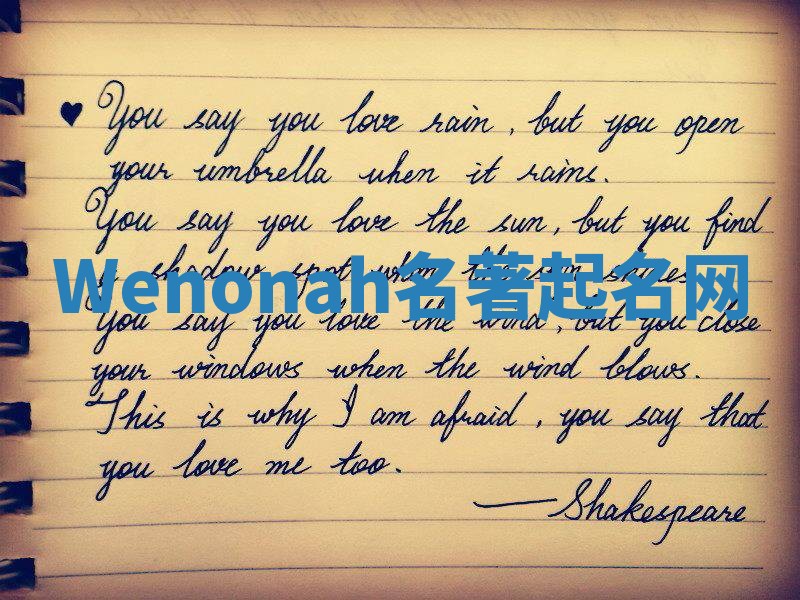 ♥ You say you love rain, but you open
your umbrella when it rains.
You say you love the sun, but you find
a shadow spot when the sun shines.
Wenonah名著起名网
You say you love the wind, but you close
your windows when the wind blows.
This is why I am afraid, you say that
you love me too.
— Shakespeare